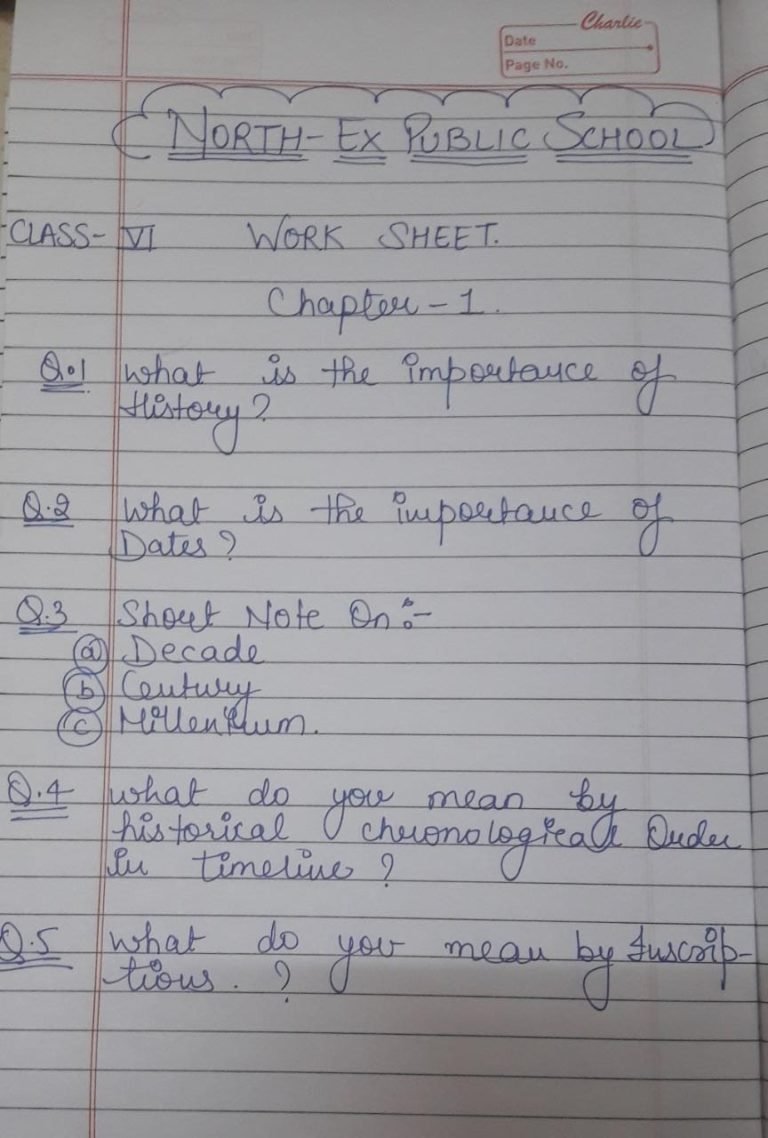 Charlie
Date
Page No.
NORTH-EX PUBLIC SCHOOL
CLASS- VI WORK SHEET.
Chapter-1.
Q.1 What is the importance of
History?
Q.2 What is the importance of
Dates?
Q.3 Short Note On:-
(a) Decade
(b) Century
(c) Millennium.
Q.4 What do you mean by
historical chronological Order
in timeline?
Q.5 What do you mean by Inscrip-
tions. ?